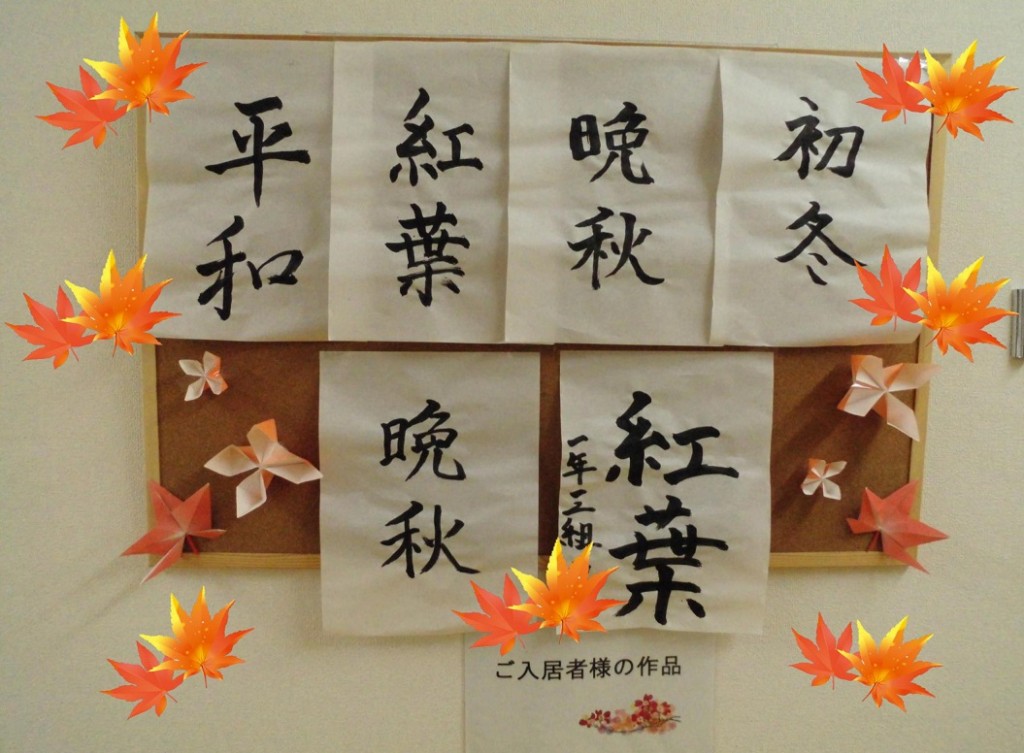 初冬
晩秋
紅葉
平和
紅葉
一年三組
晩秋
ご入居者様の作品